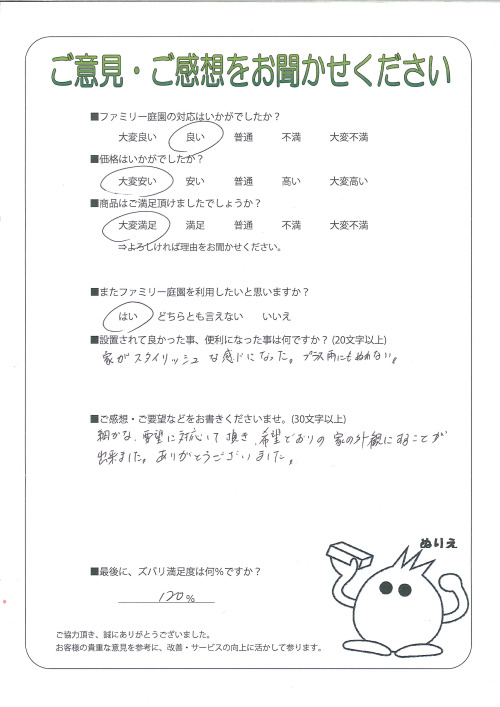 ご意見・ご感想をお聞かせください
■ファミリー庭園の対応はいかがでしたか？
大変良い 良い 普通 不満 大変不満
■価格はいかがでしたか？
大変安い 安い 普通 高い 大変高い
■商品はご満足頂けましたでしょうか？
大変満足 満足 普通 不満 大変不満
⇒よろしければ理由をお聞かせください。
■またファミリー庭園を利用したいと思いますか？
はい どちらとも言えない いいえ
■設置されて良かった事、便利になった事は何ですか？(20文字以上)
家がスタイリッシュな感じになった。プラス雨にもぬれない。
■ご感想・ご要望などをお書きくださいませ。(30文字以上)
細かな、要望に対応して頂き、希望どおりの家の外観にすることが
出来ました。ありがとうございました。
ぬりえ
■最後に、ズバリ満足度は何％ですか？
120％
ご協力頂き、誠にありがとうございました。
お客様の貴重な意見を参考に、改善・サービスの向上に活かして参ります。